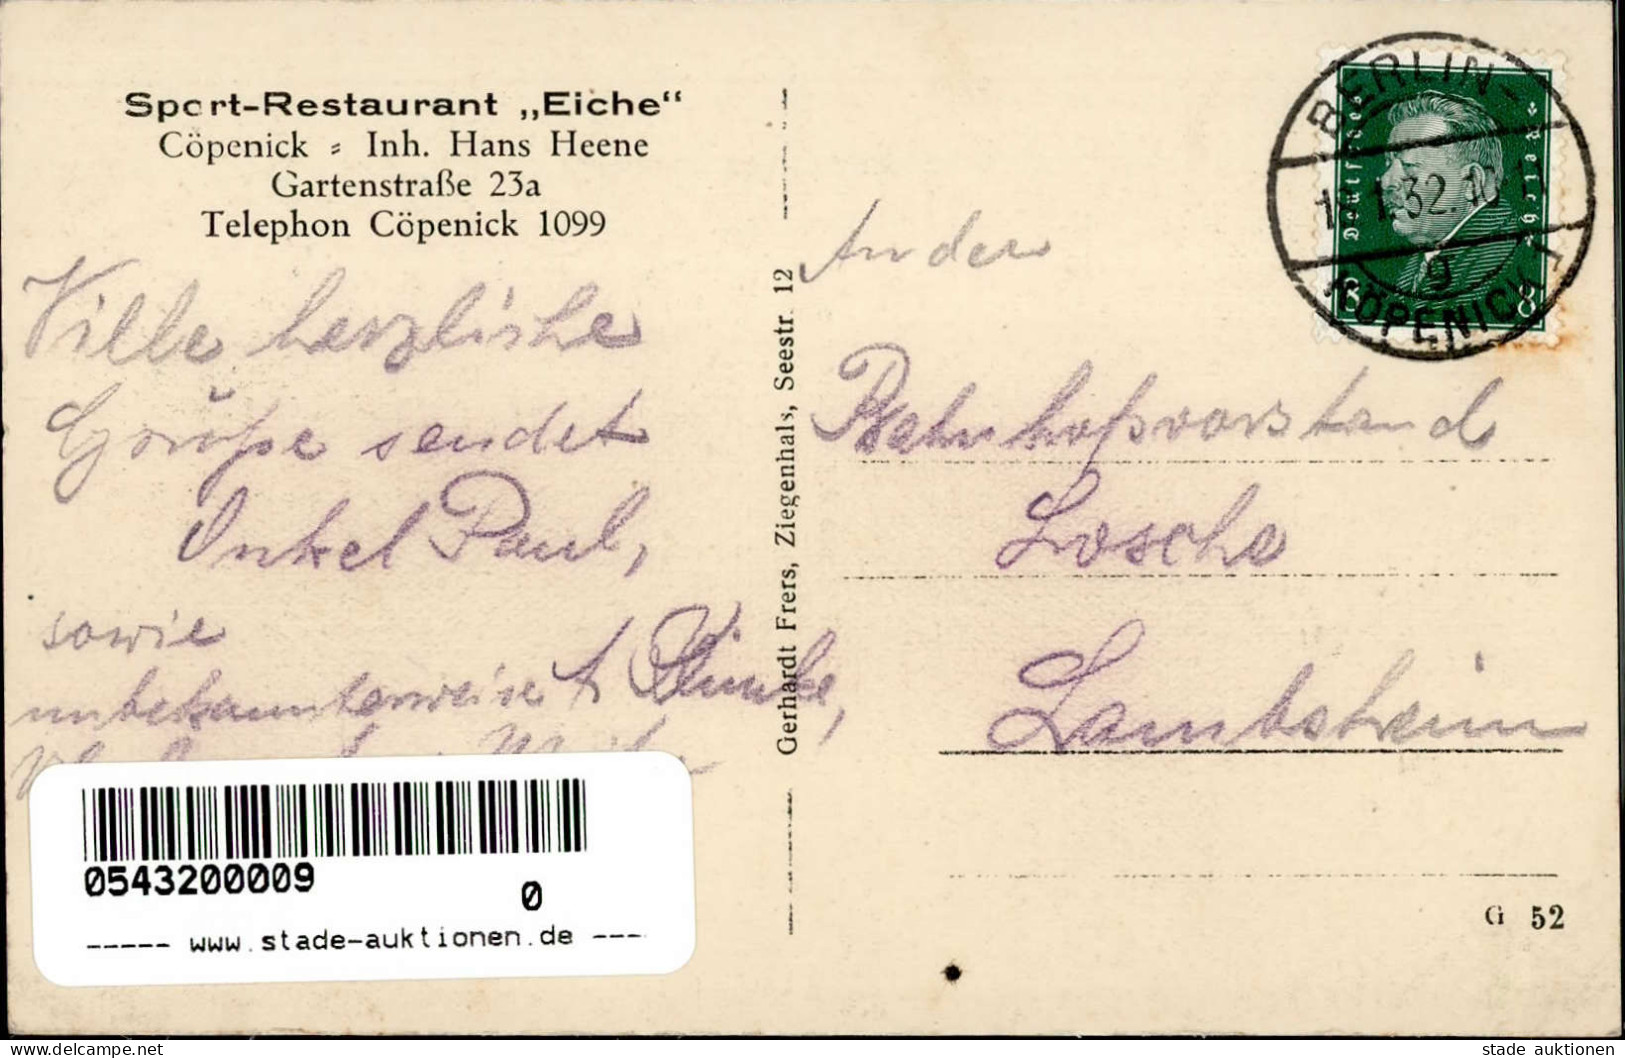 Sport-Restaurant „Eiche“
Cöpenick = Inh. Hans Heene
Gartenstraße 23a
Telephon Cöpenick 1099
Ville herzliche
Grüße sendet
Onkel Paul,
sowie
unbekannterweise
Gerhardt Frers, Ziegenhals, Seestr. 12
BERLIN-
1.32.10
g
CÖPENICK 1
Deutsches
Reich
8 8
An den
Bahnhofsvorstand
Losche
Lambsheim
G 52
0543200009
0
----- www.stade-auktionen.de ---
delcampe.net
stade auktionen